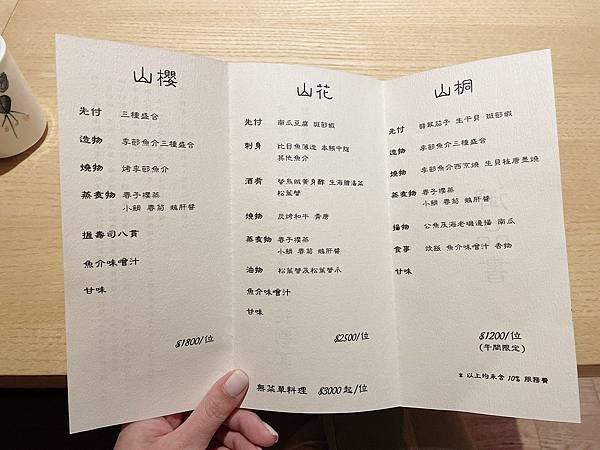 山櫻
先付 三種盛合
造物 季節魚介三種盛合
燒物 烤季節魚介
蒸煮物 春子櫻蒸
小鯛 春菊 鵝肝醬
握壽司八貫
魚介味噌汁
甘味
$1800/位
山花
先付 南瓜豆腐 斑節蝦
刺身 比目魚薄造 本鮪中腹
其他魚介
酒肴
松葉蟹
燒物 炭烤和牛 青唐
蒸煮物 春子櫻蒸
小鯛 春菊 鵝肝醬
油物 松葉蟹及松葉蟹爪
魚介味噌汁
甘味
$2500/位
無菜單料理 $3000起/位
山桐
先付 翡翠茄子 生干貝 斑節蝦
造物 季節魚介三種盛合
燒物 季節魚介西京燒 生貝柱唐墨燒
蒸煮物 春子櫻蒸
小鯛 春菊 鵝肝醬
揚物 公魚及海老磯邊揚 南瓜
食事 炊飯 魚介味噌汁 香物
甘味
$1200/位
(午間限定)
以上均未含 10% 服務費